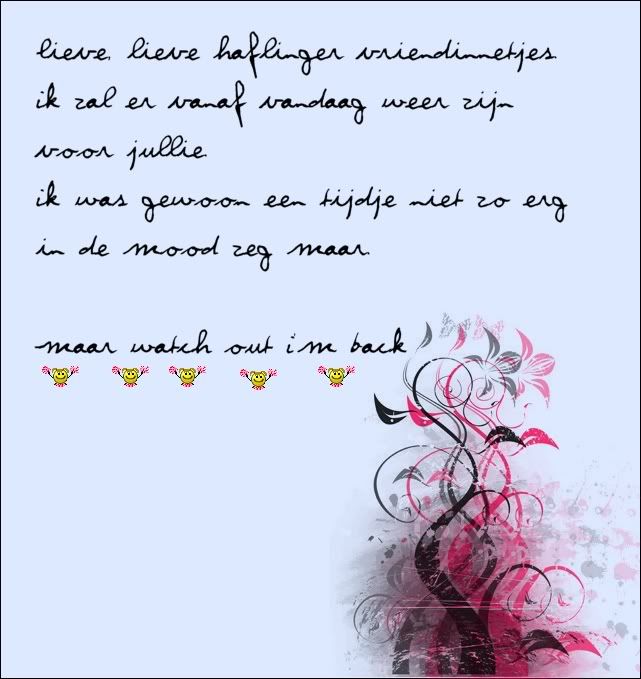 lieve, lieve haflinger vriendinnetjes.
ik zal er vanaf vandaag weer zijn
voor jullie.
ik was gewoon een tijdje niet zo erg
in de mood zeg maar.
maar watch out i'm back